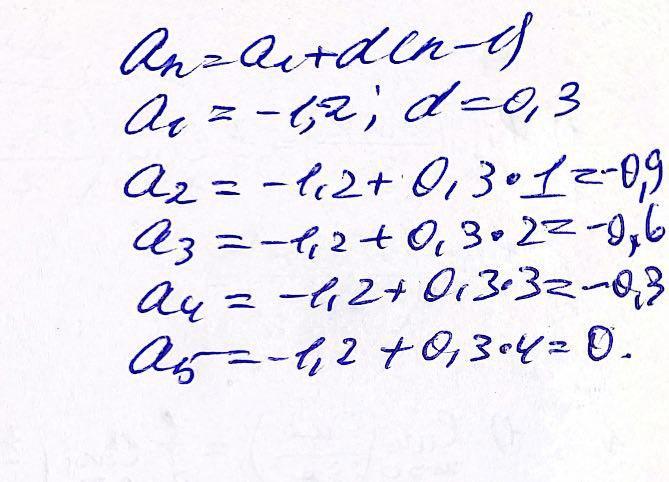 aₙ = a₁ + d(n-1)
a₁ = -1,2; d = 0,3
a₂ = -1,2 + 0,3 · 1 = -0,9
a₃ = -1,2 + 0,3 · 2 = -0,6
a₄ = -1,2 + 0,3 · 3 = -0,3
a₅ = -1,2 + 0,3 · 4 = 0.